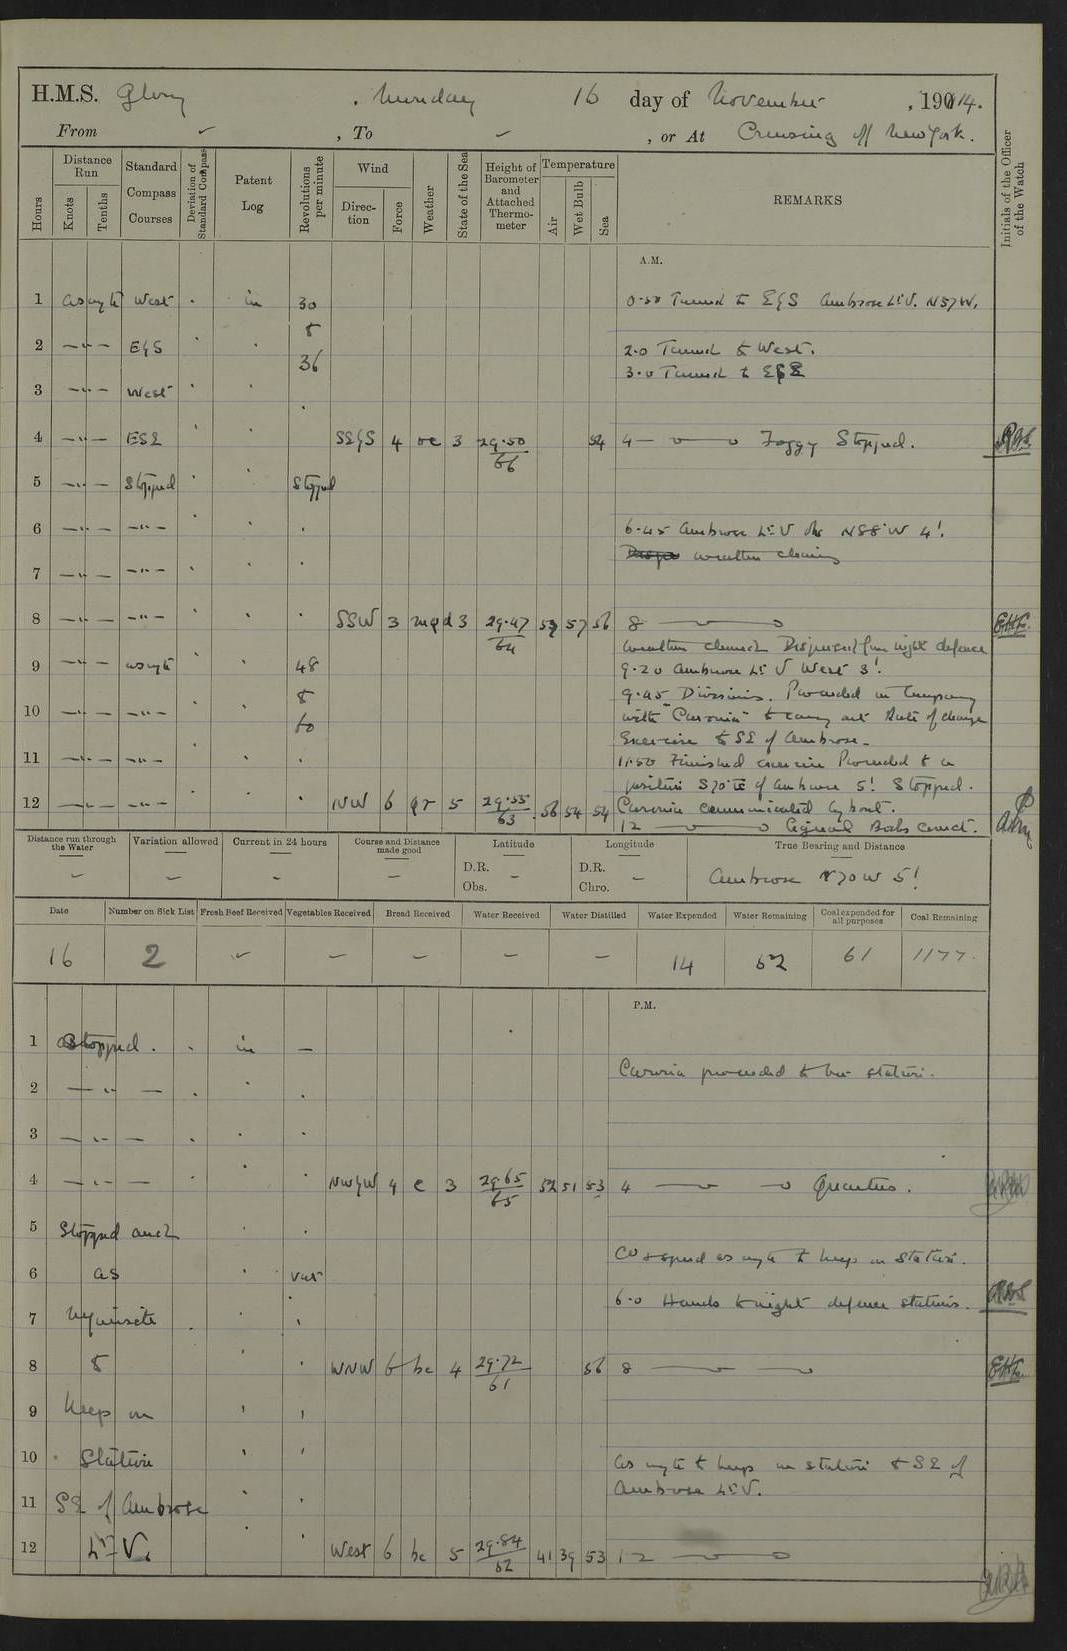 H.M.S. Glory, Monday 16 day of November, 1914.
From ✓, To ✓, or At Cruising off New York.
Hours
Distance Run
Knots
Tenths
Standard Compass Courses
Deviation of Standard Compass
Patent Log
Revolutions per minute
Wind
Direction
Force
Weather
State of the Sea
Height of Barometer and Attached Thermometer
Temperature
Air
Wet Bulb
Sea
REMARKS
Initials of the Officer of the Watch
A.M.
1 as reqte West in 30 0.50 Turned to E & S Ambrose Lt. V. N57W.
to
2 — " — E & S 2.0 Turned to West.
36 3.0 Turned to ESE
3 — " — West
4 — " — ESE SS & S 4 oc 3 29.50/66 54 4 Foggy Stopped.
5 — " — Stopped Stopped
6 — " — — " — 6.45 Ambrose Lt V obs N58°W 4!
weather clearing
7 — " — — " —
8 — " — — " — SSW 3 mqd 3 29.47/64 59 57 56 8
weather cleared Dispersed from night defence
9 — " — as reqte 48 9.20 Ambrose Lt V West 3!
to 9.45 Divisions. Proceeded in company
10 — " — — " — 60 with "Caronia" to carry out Rate of change
Exercise to SE of Ambrose.
11 — " — — " — 11.50 Finished exercise Proceeded to a
position S70°E of Ambrose 5! Stopped.
12 — " — — " — NW 6 qr 5 29.55/63 56 54 54 Caronia communicated by boat.
12 Signal Books correct.
Distance run through the Water
Variation allowed
Current in 24 hours
Course and Distance made good
Latitude
D.R.
Obs.
Longitude
D.R.
Chro.
True Bearing and Distance
Ambrose N70W 5!
Date
Number on Sick List
Fresh Beef Received
Vegetables Received
Bread Received
Water Received
Water Distilled
Water Expended
Water Remaining
Coal expended for all purposes
Coal Remaining
16 2 14 62 61 1177.
P.M.
1 Stopped. in —
Caronia proceeded to her station.
2 — " —
3 — " —
4 — " — NW & W 4 c 3 29.65/65 52 51 53 4 Quarters.
5 Stopped and
Co & speed as reqte to keep on station.
6 as var
6.0 Hands to night defence stations.
7 requisite
8 to WNW 6 bc 4 29.72/61 56 8
9 keep on
10 Station as reqte to keep on station to SE of
Ambrose Lt. V.
11 SE of Ambrose
12 Lt. V. West 6 bc 5 29.84/62 41 39 53 12